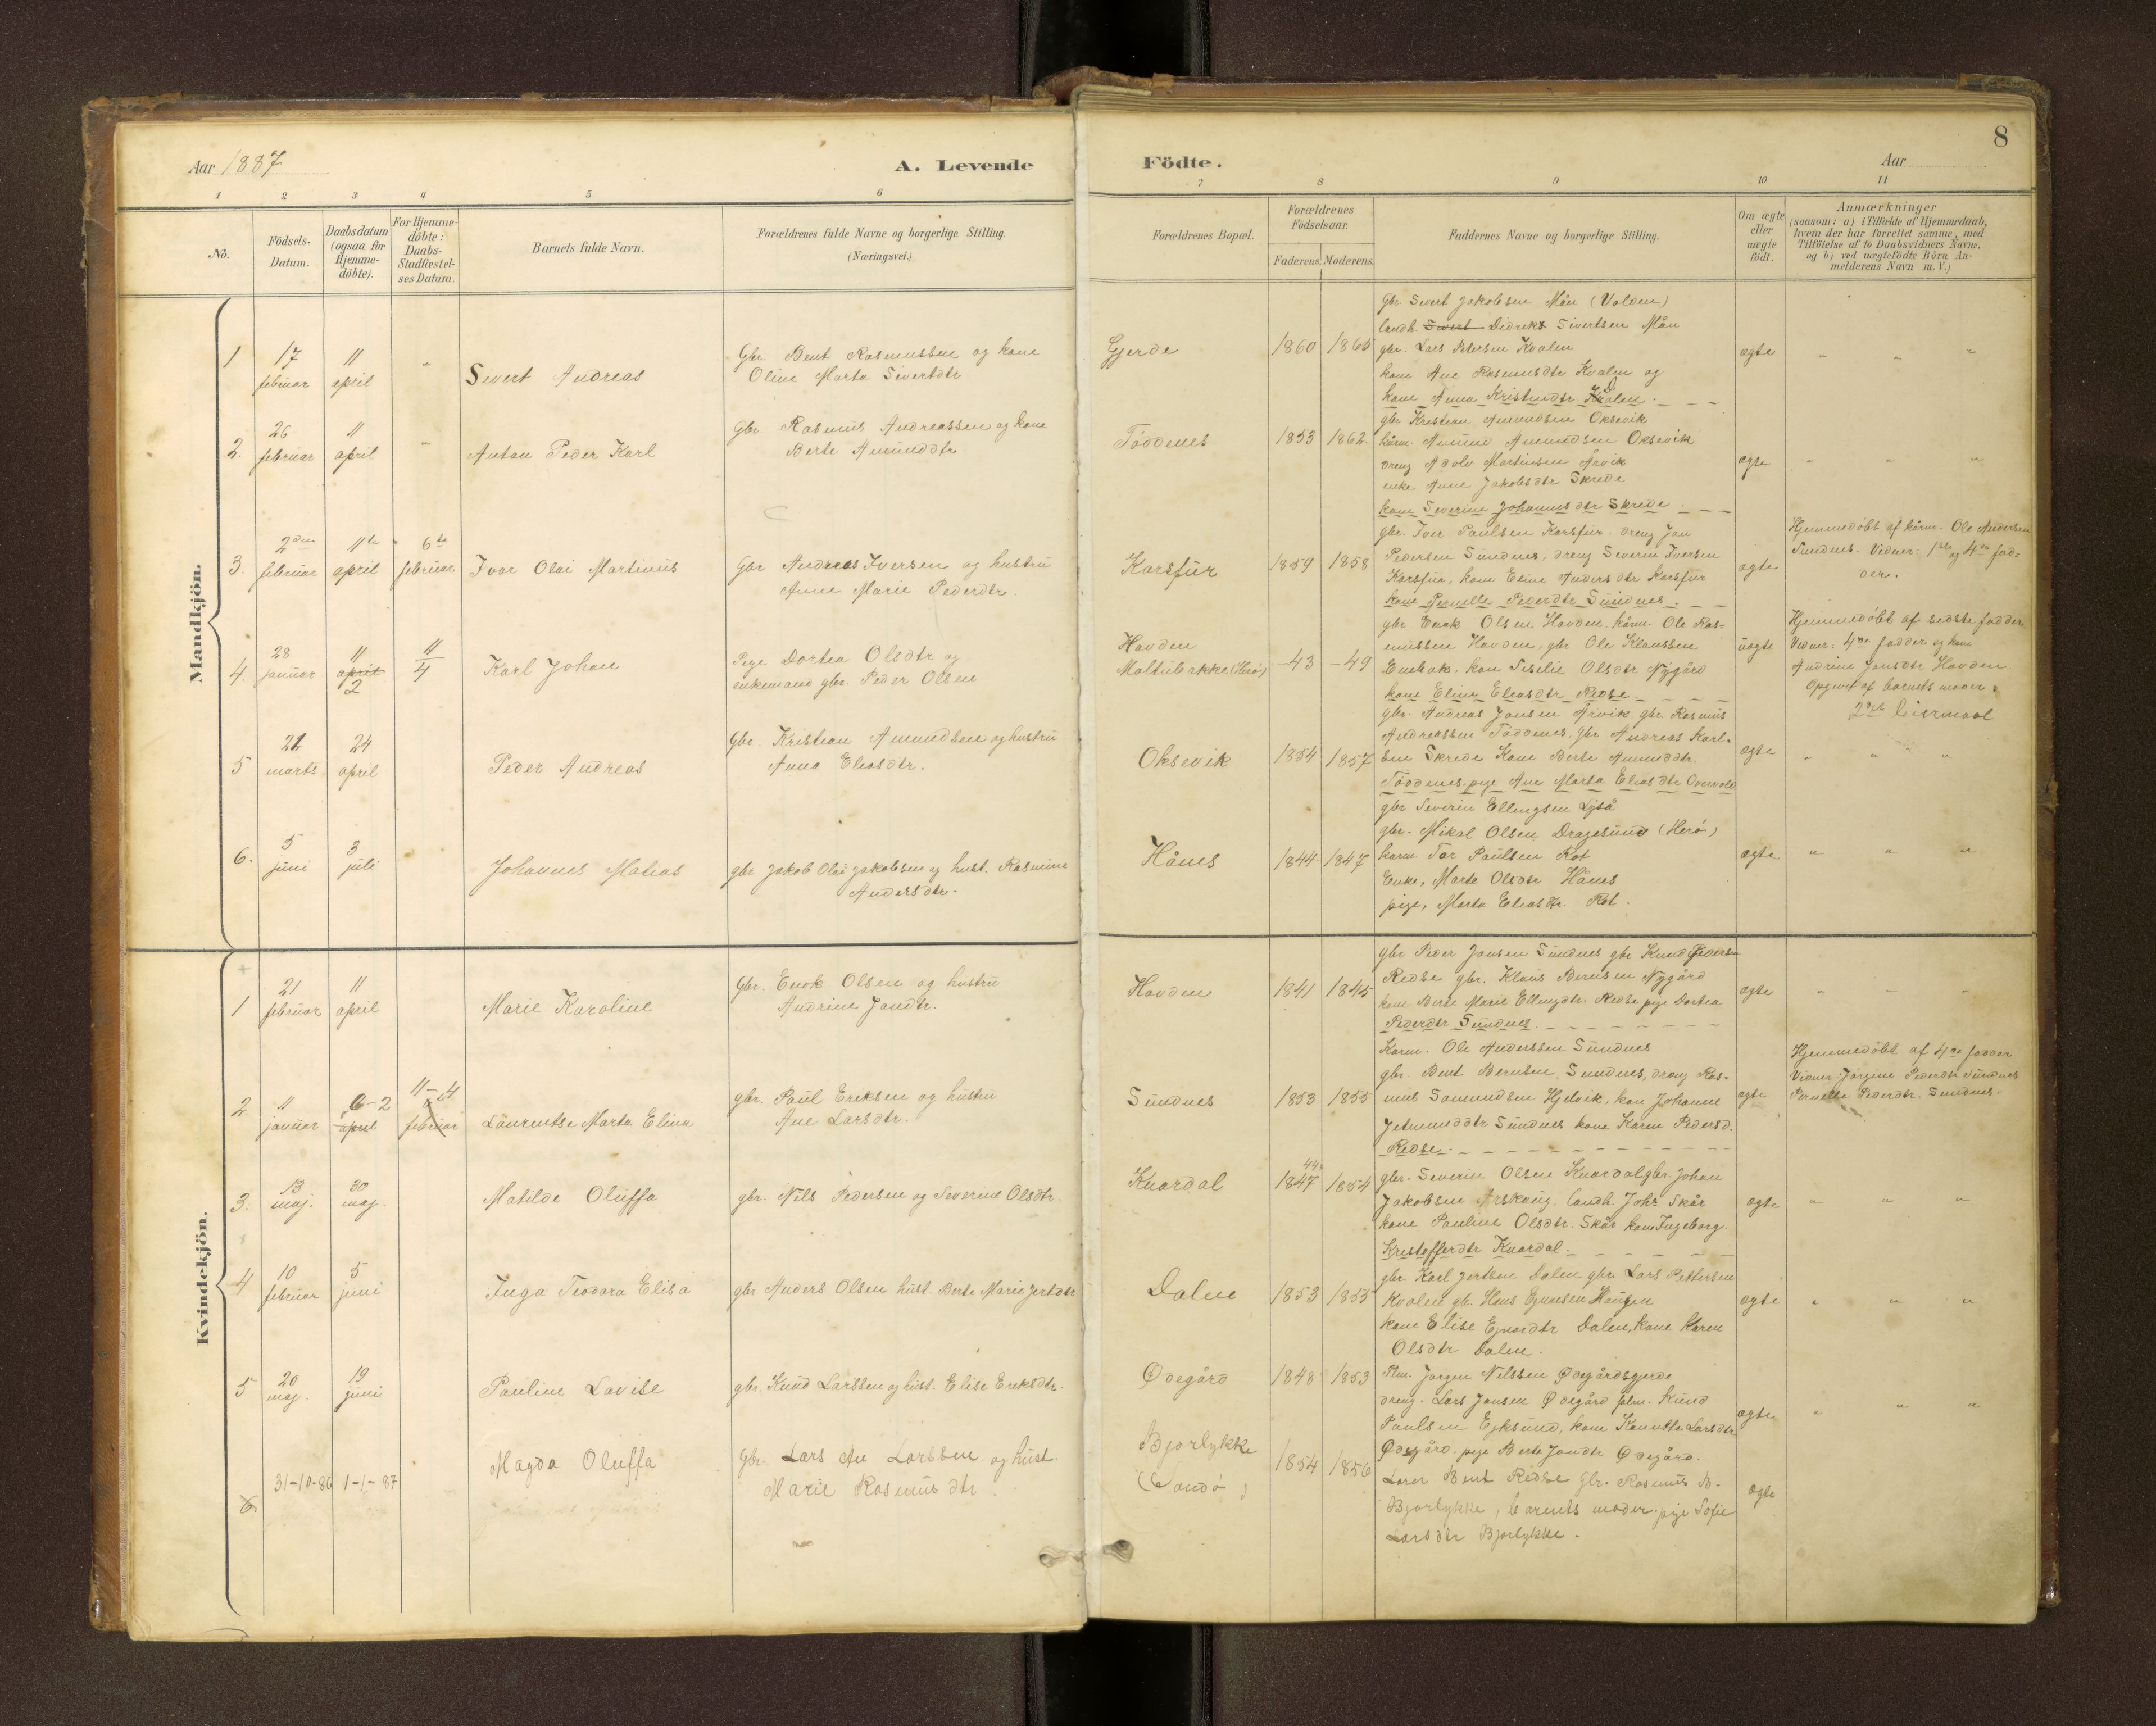 8
Aar 1887
A. Levende
Födte.
Aar
1 2 3 4 5 6 7 8 9 10 11
No.
Födsels-
Datum.
Daabsdatum
(ogsaa for
Hjemme-
döbte).
For Hjemme-
döbte:
Daabs-
Stadfæstel-
ses Datum.
Barnets fulde Navn.
Forældrenes fulde Navne og borgerlige Stilling.
(Næringsvei.)
Forældrenes Bopæl.
Forældrenes
Födselsaar.
Faderens. Moderens.
Faddernes Navne og borgerlige Stilling.
Om ægte
eller
uægte
födt.
Anmærkninger
(saasom: a) i Tilfælde af Hjemmedaab,
hvem der har forrettet samme, med
Tilföielse af to Daabsvidners Navne.
og b) ved uægtefödte Börn An-
melderens Navn m. V.)
Mandkjön.
1
17
februar
11
april
"
Sivert Andreas
Gbr Bent Rasmussen og kone
Oline Marta Sivertdtr
Gjerde
1860 1865
gbr Sivert Jakobsen Mån (Volden)
landh. Sivert Didrik Sivertsen Mån
gbr. Lars Petersen Kvalen
kone Ane Rasmusdtr Kvalen og
kone Anna Kristendtr
ægte
" " "
2.
26
februar
11
april
"
Anton Peder Karl
Gbr Rasmus Andreassen og kone
Berte Amunddtr
Töddenes
1853 1862.
gbr Kristian Amundsen Oksevik
kårm. Amund Amundsen Oksevik
dreng Adolv Martinsen Årvik
enke Anne Jakobsdtr Skrede
kone Severine Johannesdtr Skrede.
ægte
" " "
3.
2den
februar
11te
april
6te
februar
Ivar Olai Martinus
Gbr Andreas Iversen og hustru
Anne Marie Pederdtr.
Korsfur
1859 1858
gbr. Iver Paulsen Korsfur, dreng Jan
Pedersen Sundnes, dreng Severin Iversen
Korsfur, kone Eline Andersdtr Korsfur
kone Pernelle Pederdtr Sundnes.
ægte
Hjemmedöbt af kårm. Ole Andersen
Sundnes. Vidner: 1ste og 4de fad-
der.
4.
28
januar
11
april
2
11
4
Karl Johan
Pige Dortea Olsdtr og
enkemand gbr. Peder Olsen
Havden
Moltubakke (Herö)
-43 -49
gbr Enok Olsen Havden, kårm. Ole Ras-
mussen Havden, gbr Ole Klaussen
kon Siselie Olsdtr Nygård
kone Eline Eliasdtr Redse
uægte
Hjemmedöbt af sidste fadder
Vidner: 4de fadder og kone
Andrine Jansdtr Havden.
Opgivet af barnets moder.
2det leiermaal
5
21
marts
24
april
Peder Andreas
Gbr. Kristian Amundsen og hustru
Anna Eliasdtr.
Oksevik
1854 1857
gbr. Andreas Jansen Årvik gbr Rasmus
Andreassen Töddenes, gbr Andreas Karl-
sen Skrede Kone Berte Amunddtr.
Töddenes, pige Ane Marta Eliasdtr Overvold
ægte
" " "
6.
5
juni
3
juli
Johannes Matias
gbr Jakob Olai Jakobsen og hust. Rasmine
Andersdtr.
Hånes
1844 1847
gbr Severin Ellingsen
gbr. Mikal Olsen Dragesund (Herö)
karm. Tor Paulsen Röt
Enke, Marte Olsdtr Hånes
pige, Marta Eliasdtr. Röt.
ægte
" " "
Kvindekjön.
1
21
februar
11
april
Marie Karoline
Gbr. Enok Olsen og hustru
Andrine Jandtr.
Havden
1841 1845
gbr Peder Jansen Sundnes gbr Knud Pedersen
Redse gbr. Klaus Berntsen Nygård
kone Berte Marie Ellingdtr. Redse pige Dortea
Pederdtr Sundnes.
ægte
" " "
2.
11
januar
6-2
april
11-4
februar
Laurentse Marta Elina
gbr. Paul Eriksen og hustru
Ane Larsdtr.
Sundnes
1853 1855
Karm. Ole Anderssen Sundnes
gbr. Bent Berntsen Sundnes, dreng Ras-
mus Samundsen Hjelvik, kon Johanne
Jetmunddtr Sundnes kone Karen Pedersd.
Redse.
ægte
Hjemmedöbt af 4de fadder
Vidner Jörgine Pederdtr Sundnes
Pernelle Pederdtr. Sundnes.
3.
13
maj.
30
maj.
Matilde Oluffa
gbr. Nils Pedersen og Severine Olsdtr.
Knardal
44
1847 1854
gbr. Severin Olsen Knardal gbr. Johan
Jakobsen Årskaug. landh. Johs Skår
kone Pauline Olsdtr. Skår kone Ingeborg
Kristofferdtr Knardal.
ægte
" " "
4
10
februar
5
juni
Inga Teodora Elisa
gbr Anders Olsen hust. Berte Marie Jertdtr
Dalen
1853 1855
gbr. Karl Jertsen Dalen gbr. Lars Pettersen
Kvalen gb. Hans Ejnarsen Haugen
kone Elise Ejnardtr Dalen, kone Karen
Olsdtr Dalen.
ægte
" " "
5
20
maj.
19
juni
Pauline Lovise
gbr. Knud Larssen og hust. Elise Eriksdtr.
Ödegård
1848 1853
Jörgen Nilssen Ödegårdsgjerde
dreng. Lars Jansen Ödegård Knud
Paulsen Ejksund, kone Larsdtr
Ödegård. pige Berte Jandtr Ödegård.
ægte
" " "
6.
31-10-86
1-1-87
Magda Oluffa
Gbr. Lars Larssen og hust.
Marie Rasmusdtr.
Bjorlykke
(Sandö)
1854 1856
Lærer Bent Redse Gbr. Rasmus B.
Bjorlykke, barnets moder. pige Sofie
Larsdtr Bjorlykke.
ægte